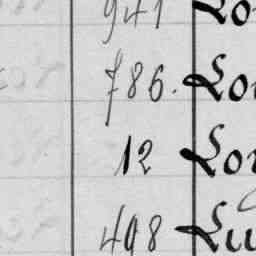 941 Lo
786. Lo
12 Lor
498 Lu